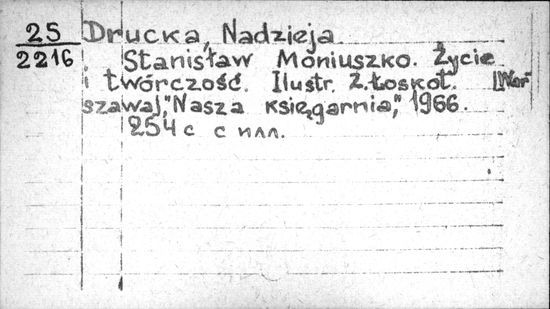 25 Drucka, Nadzieja
2216 Stanisław Moniuszko. Życie
i twórczość. Ilustr. Z. Łoskot. [War-
szawa], "Nasza księgarnia", 1966.
254 с с илл.